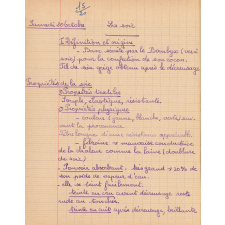 15
Samedi 20 octobre La soie
I Définition et origine
- Bave sécrétée par le Bombyx (du
) pour la confection de son cocon.
Fil de soie grège obtenu après le décreusage
Propriétés de la soie
a Propriétés textiles
Souple, élastique, résistante.
b Propriétés physiques
- couleur : (jaune, blanche, verte) sui-
vant la provenance
d'une résistance appréciable.
- feutrée = mauvaise conductrice
de la chaleur comme la laine (doublure
de
- Pouvoir absorbant. très grand = 30% de
son poids de vapeur d'eau.
- elle se teint facilement.
avant décreusage reste
rude au toucher.
après décreusage, brillante